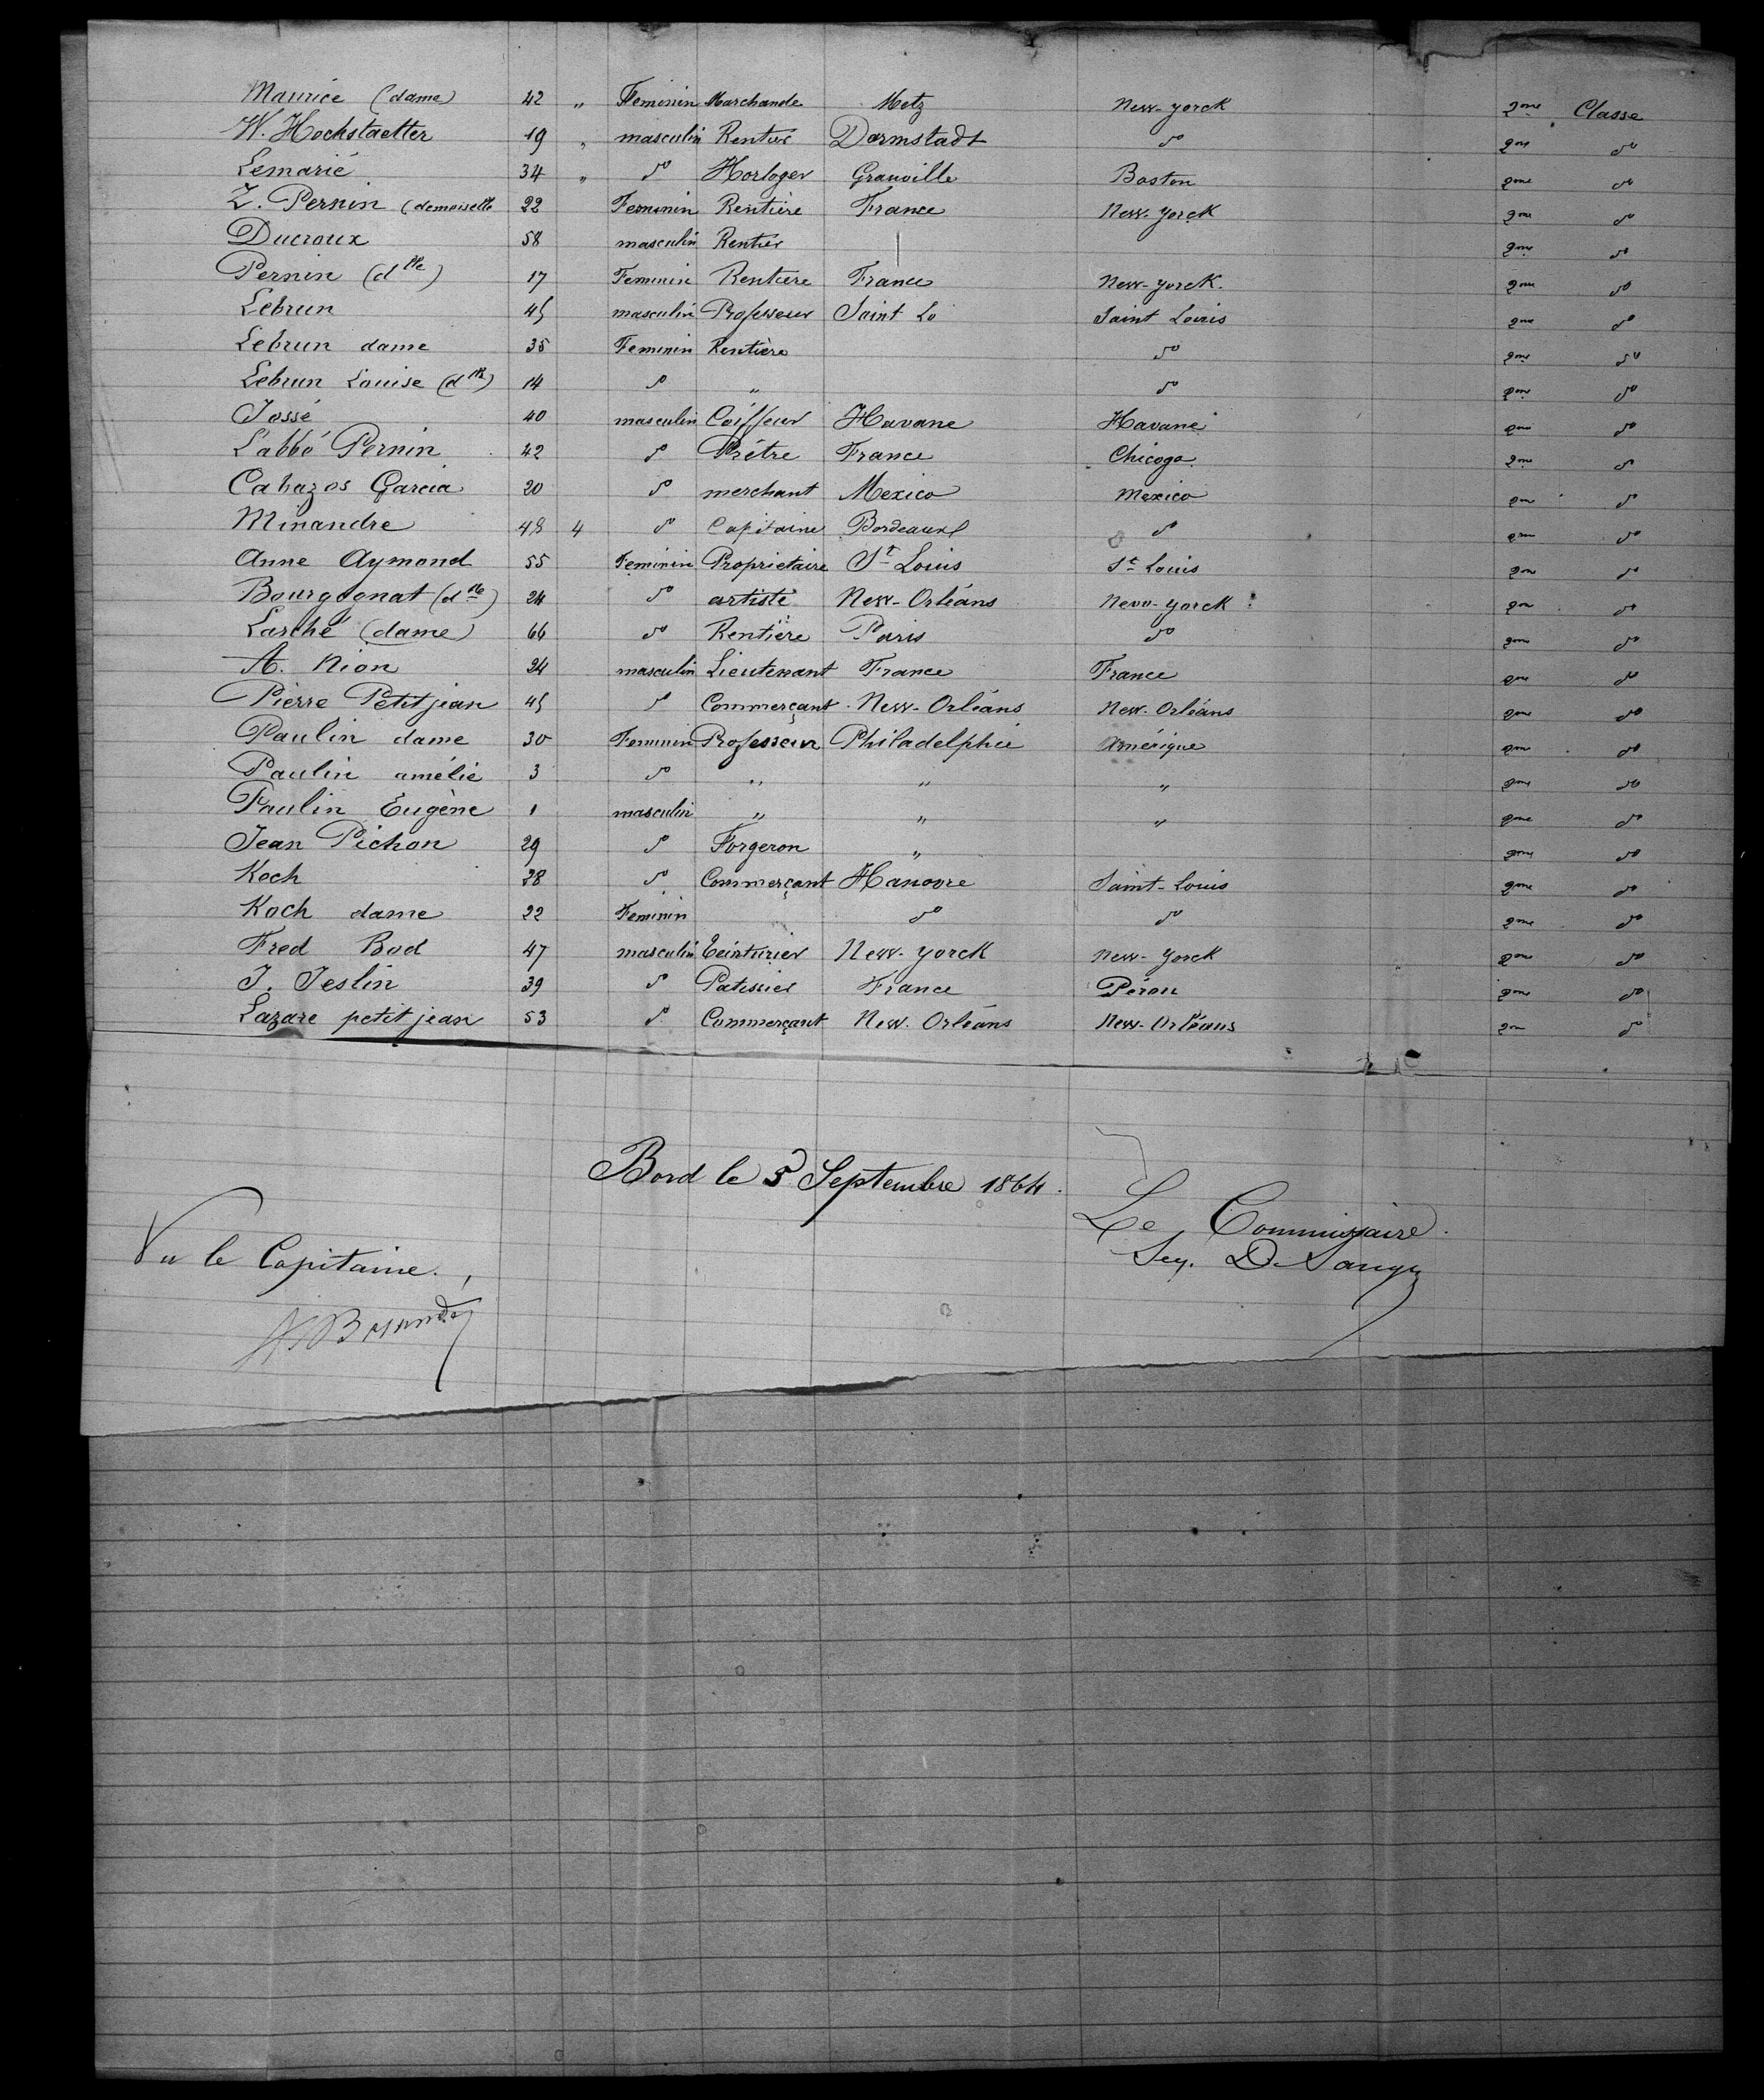 Maurice (dame) 42 " Feminin Marchande Metz New-yorck 2me Classe
W. Hochstaetter 19 " masculin Rentier Darmstadt do 2me do
Lemarié 34 " do Horloger Granville Boston 2me do
Z. Pernin (demoiselle 22 Feminin Rentière France New-yorck 2me do
Ducroux 58 masculin Rentier 2me do
Pernin (dlle) 17 Feminin Rentiere France New-yorck. 2me do
Lebrun 45 masculin Professeur Saint Lo Saint Louis 2me do
Lebrun dame 35 Feminin Rentière do 2me do
Lebrun Louise (dlle) 14 do " do 2me do
Jossé 40 masculin Coiffeur Havane Havane 2me do
L'abbé Pernin 42 do Prêtre France Chicogo 2me do
Cabazos Garcia 20 do merchant Mexico Mexico 2me do
Minandre 48 4 do Capitaine Bordeaux do 2me do
Anne Aymond 55 Feminin Proprietaire St Louis St Louis 2me do
Bourgognat (dlle) 24 do artiste New-Orléans New-yorck 2me do
Larché (dame) 66 do Rentière Paris do 2me do
A. Nion 24 masculin Lieutenant France France 2me do
Pierre Petitjean 45 do Commerçant New-Orléans New-Orléans 2me do
Paulin dame 30 Feminin Professeur Philadelphie Amérique 2me do
Paulin amélie 3 do " " " 2me do
Paulin Eugène 1 masculin " " " 2me do
Jean Pichon 29 do Forgeron " 2me do
Koch 28 do Commerçant Hanovre Saint-Louis 2me do
Koch dame 22 Feminin do do 2me do
Fred Bod 47 masculin Teinturier New-yorck New-yorck 2me do
J. Jeslin 39 do Patissier France Pérou 2me do
Lazare petitjean 53 do Commerçant New-Orléans New-Orléans 2me do
Bord le 5 Septembre 1864.
Le Commissaire.
Vu le Capitaine.